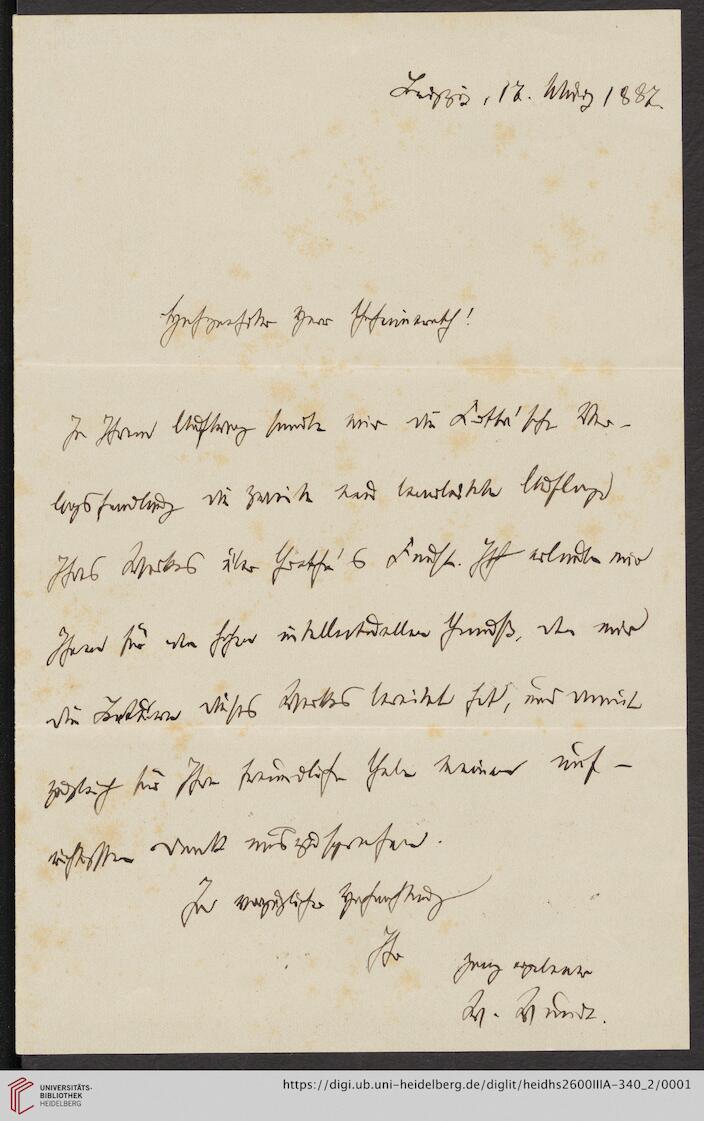 Leipzig, 17. März 1882.
Hochgeehrter Herr Geheimerath!
In Ihrem Auftrag sandte mir die Cotta'sche Ver-
lagshandlung die zweite neu bearbeitete Auflage
Ihres Werkes über Goethe's Faust. Ich erlaube mir
Ihnen für den hohen intellectuellen Genuß, den mir
die Lektüre dieses Werkes bereitet hat, und damit
zugleich für Ihre freundliche Gabe meinen auf-
richtigsten Dank auszusprechen.
In vorzüglicher Hochachtung
Ihr
ganz ergebener
W. Wundt.
UNIVERSITÄTS-
BIBLIOTHEK
HEIDELBERG
https://digi.ub.uni-heidelberg.de/diglit/heidhs2600IIIA-340_2/0001